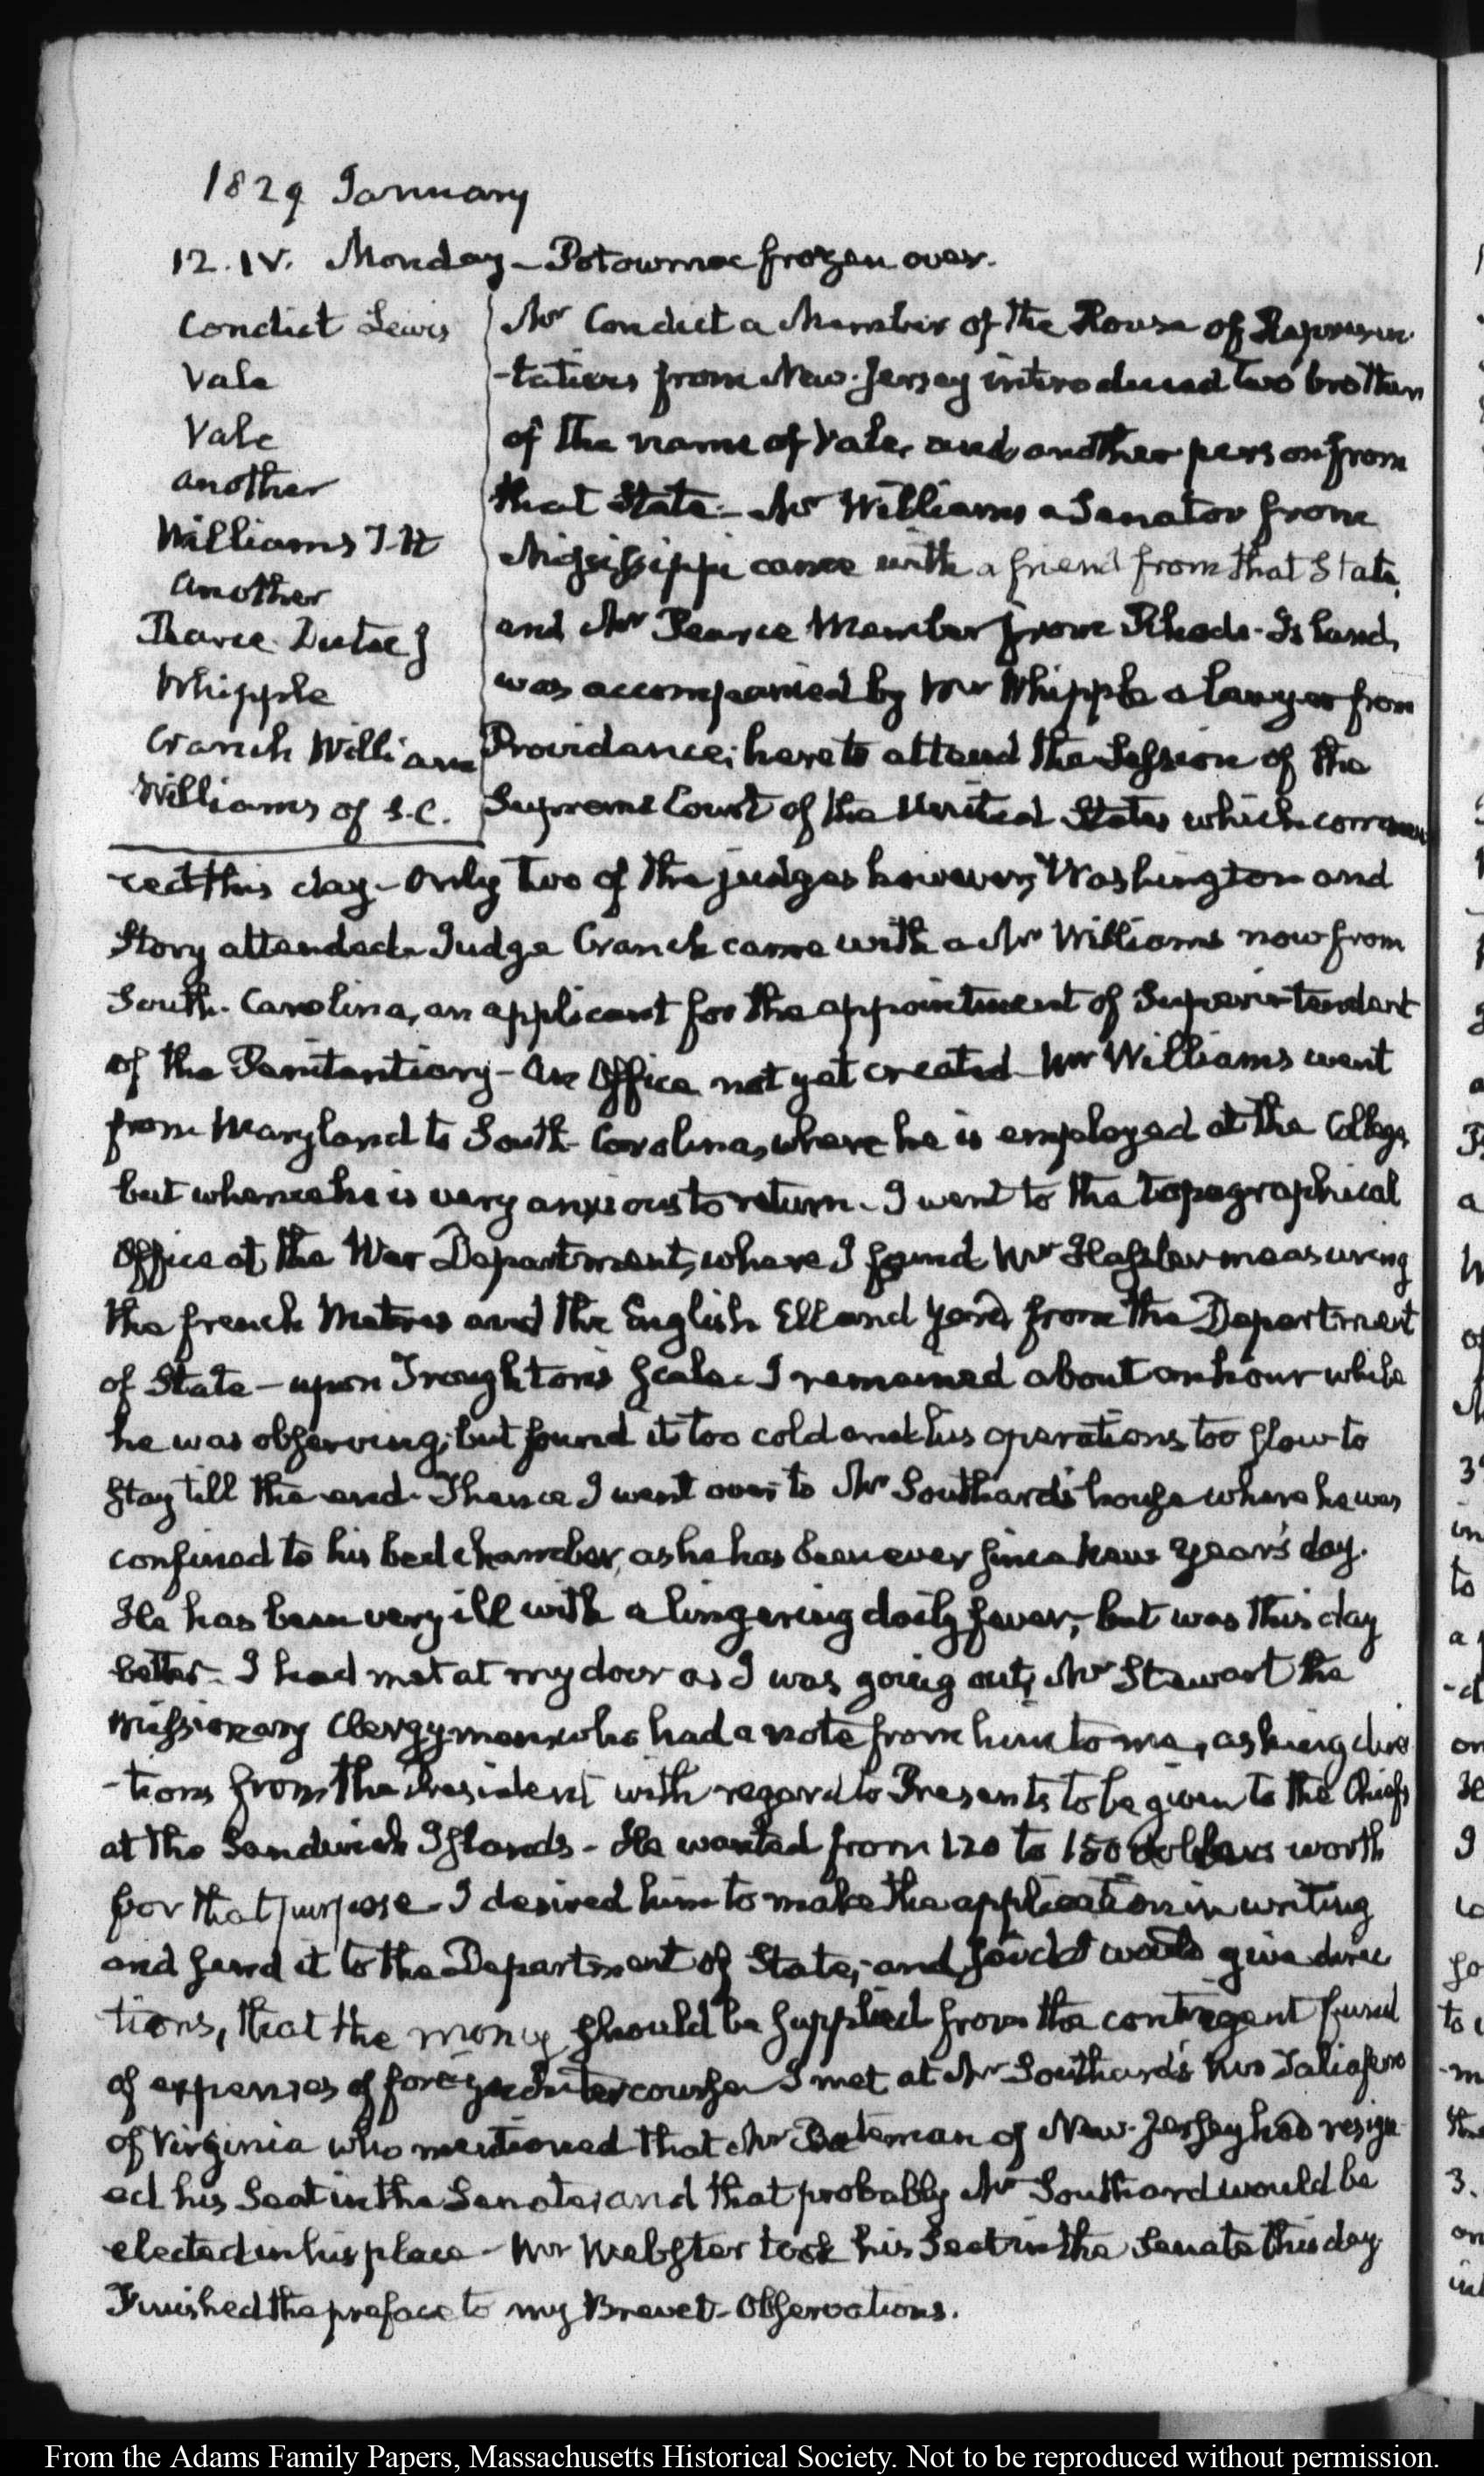 1829 January
12. IV. Monday - Potowmac frozen over.
Condict Lewis
Vale
Vale
another
Williams T. H
another
Pearce Dutee J
Whipple
Cranch William
Williams of S.C.
Mr Condict a Member of the House of Represen-
-tatives from New-Jersey introduced two brothers
of the name of Vale, and another person from
that State - Mr Williams a Senator from
Mississippi came with a friend from that State,
and Mr Pearce Member from Rhode-Island,
was accompanied by Mr Whipple a lawyer from
Providence; here to attend the Session of the
Supreme Court of the United States which commen
ced this day - Only two of the judges however, Washington and
Story attended. Judge Cranch came with a Mr Williams now from
South-Carolina, an applicant for the appointment of Superintendent
of the Penitentiary - An Office not yet created. Mr Williams went
from Maryland to South-Carolina, where he is employed at the College,
but whence he is very anxious to return. I went to the topographical
Office at the War Department, where I found Mr Hassler measuring
the french Metres and the English Ell and yard from the Department
of State - upon Troughton's Scale. I remained about an hour while
he was observing; but found it too cold and his operations too slow to
stay till the end. Thence I went over to Mr Southard's house where he was
confined to his bed chamber, as he has been ever since New Year's day.
He has been very ill with a lingering daily fever; but was this day
better. I had met at my door as I was going out, Mr Stewart the
Missionary Clergyman, who had a note from him to me, asking direc
-tions from the President with regard to Presents to be given to the Chiefs
at the Sandwich Islands - He wanted from 120 to 150 dollars worth
for that purpose - I desired him to make the application in writing
and send it to the Department of State; and said I would give direc
tions, that the money should be supplied from the contingent fund
of expenses of foreign intercourse. I met at Mr Southard's Mr Taliafero
of Virginia who mentioned that Mr Bateman of New-Jersey had resign-
ed his Seat in the Senate, and that probably Mr Southard would be
elected in his place - Mr Webster took his Seat in the Senate this day.
Finished the preface to my Brevet-Observations.
From the Adams Family Papers, Massachusetts Historical Society. Not to be reproduced without permission.